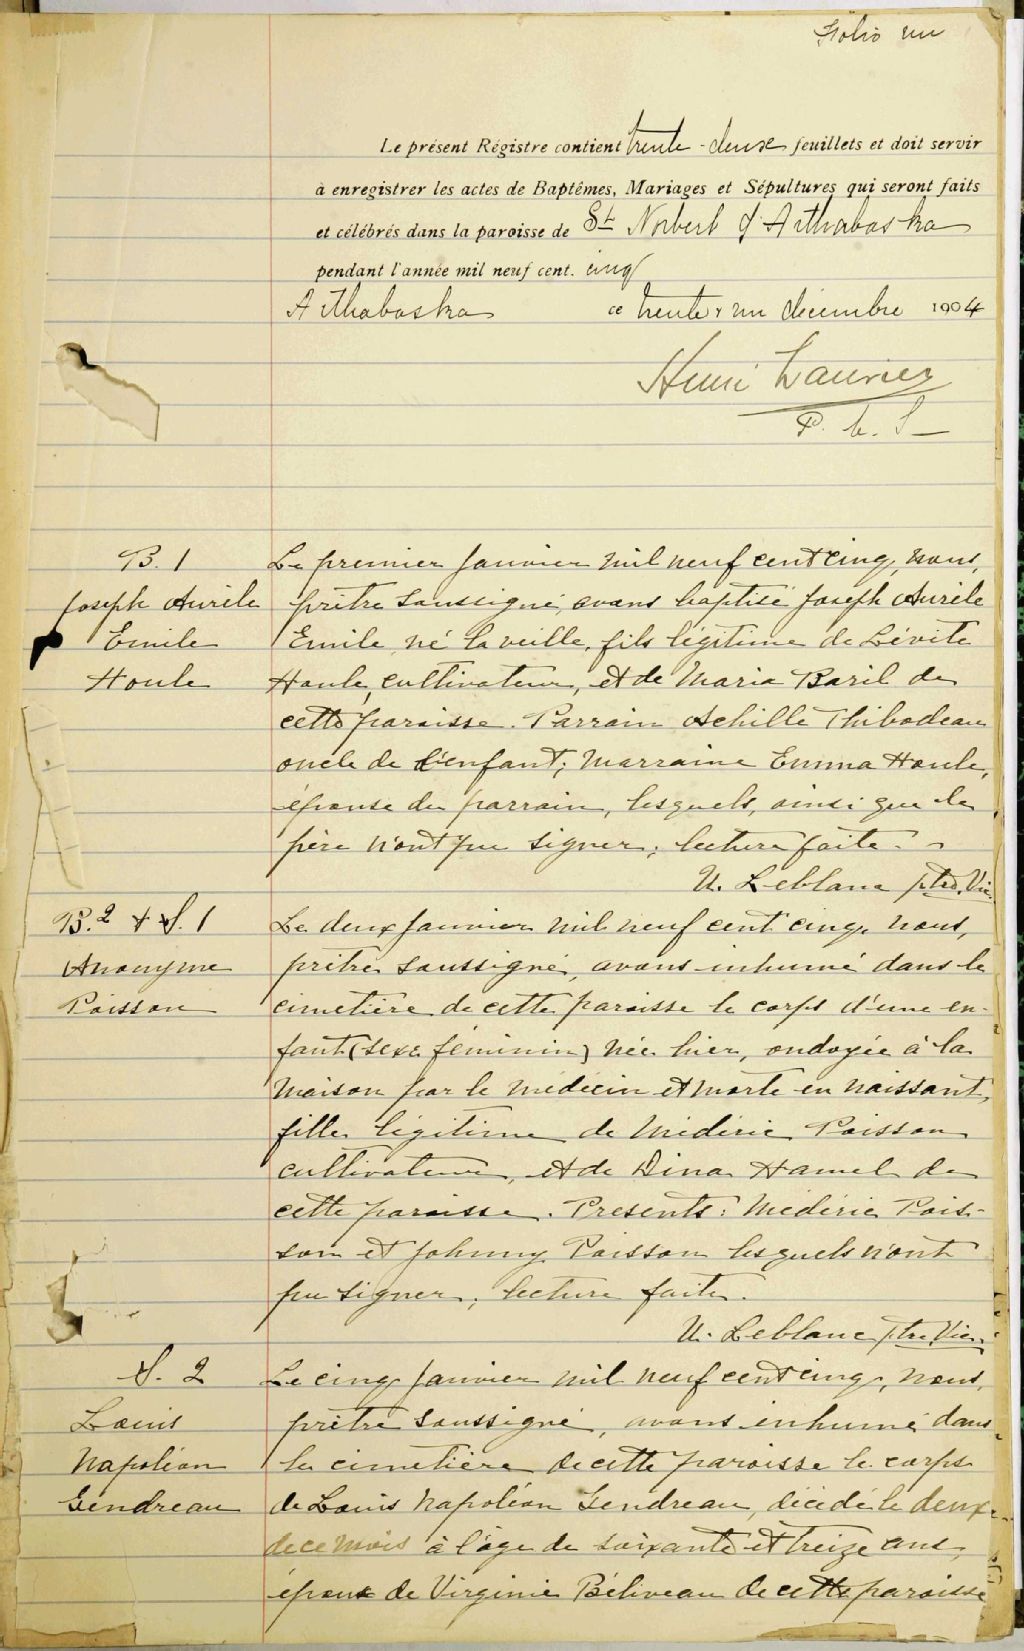 Folio un
Le présent Régistre contient trente-deux feuillets et doit servir
à enregistrer les actes de Baptêmes, Mariages et Sépultures qui seront faits
et célébrés dans la paroisse de St Norbert d'Arthabaska
pendant l'année mil neuf cent. cinq
Arthabaska ce trente & un décembre 1904
Henri Laurier
P. C. S
B. 1
Joseph Aurèle
Emile
Houle
Le premier Janvier mil neuf cent cinq, nous,
prêtre soussigné, avons baptisé Joseph Aurèle
Emile, né la veille, fils légitime de Lévite
Houle, cultivateur, et de Maria Baril de
cette paroisse. Parrain Achille Thibodeau
oncle de l'enfant; marraine Emma Houle,
épouse du parrain, lesquels, ainsi que le
père n'ont pu signer; lecture faite.
U. Leblanc ptre. Vic.
B. 2 & S. 1
Anonyme
Poisson
Le deux Janvier mil neuf cent cinq, nous,
prêtre soussigné, avons inhumé dans le
cimetière de cette paroisse le corps d'une en-
fant (sexe féminin) née hier, ondoyée à la
maison par le médecin et morte en naissant,
fille légitime de Médéric Poisson
cultivateur, et de Dina Hamel de
cette paroisse. Présents: Médéric Pois-
son et Johnny Poisson lesquels n'ont
pu signer; lecture faite.
U. Leblanc ptre Vic.
S. 2
Louis
Napoléon
Gendreau
Le cinq Janvier mil neuf cent cinq, nous,
prêtre soussigné, avons inhumé dans
le cimetière de cette paroisse le corps
de Louis Napoléon Gendreau, décédé le deux
de ce mois à l'âge de soixante et treize ans,
époux de Virginie Béliveau de cette paroisse